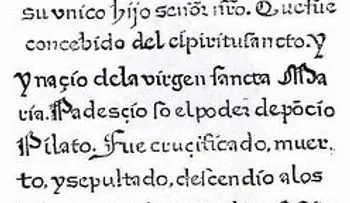 su vnico hijo señor ñro. Que fue
concebido del espiritusancto. y
ynaçio dela virgen sancta Ma
ria. Padesçio so el poder de põcio
Pilato. Fue cruçificado, muer.
to, y sepultado, descendio a los